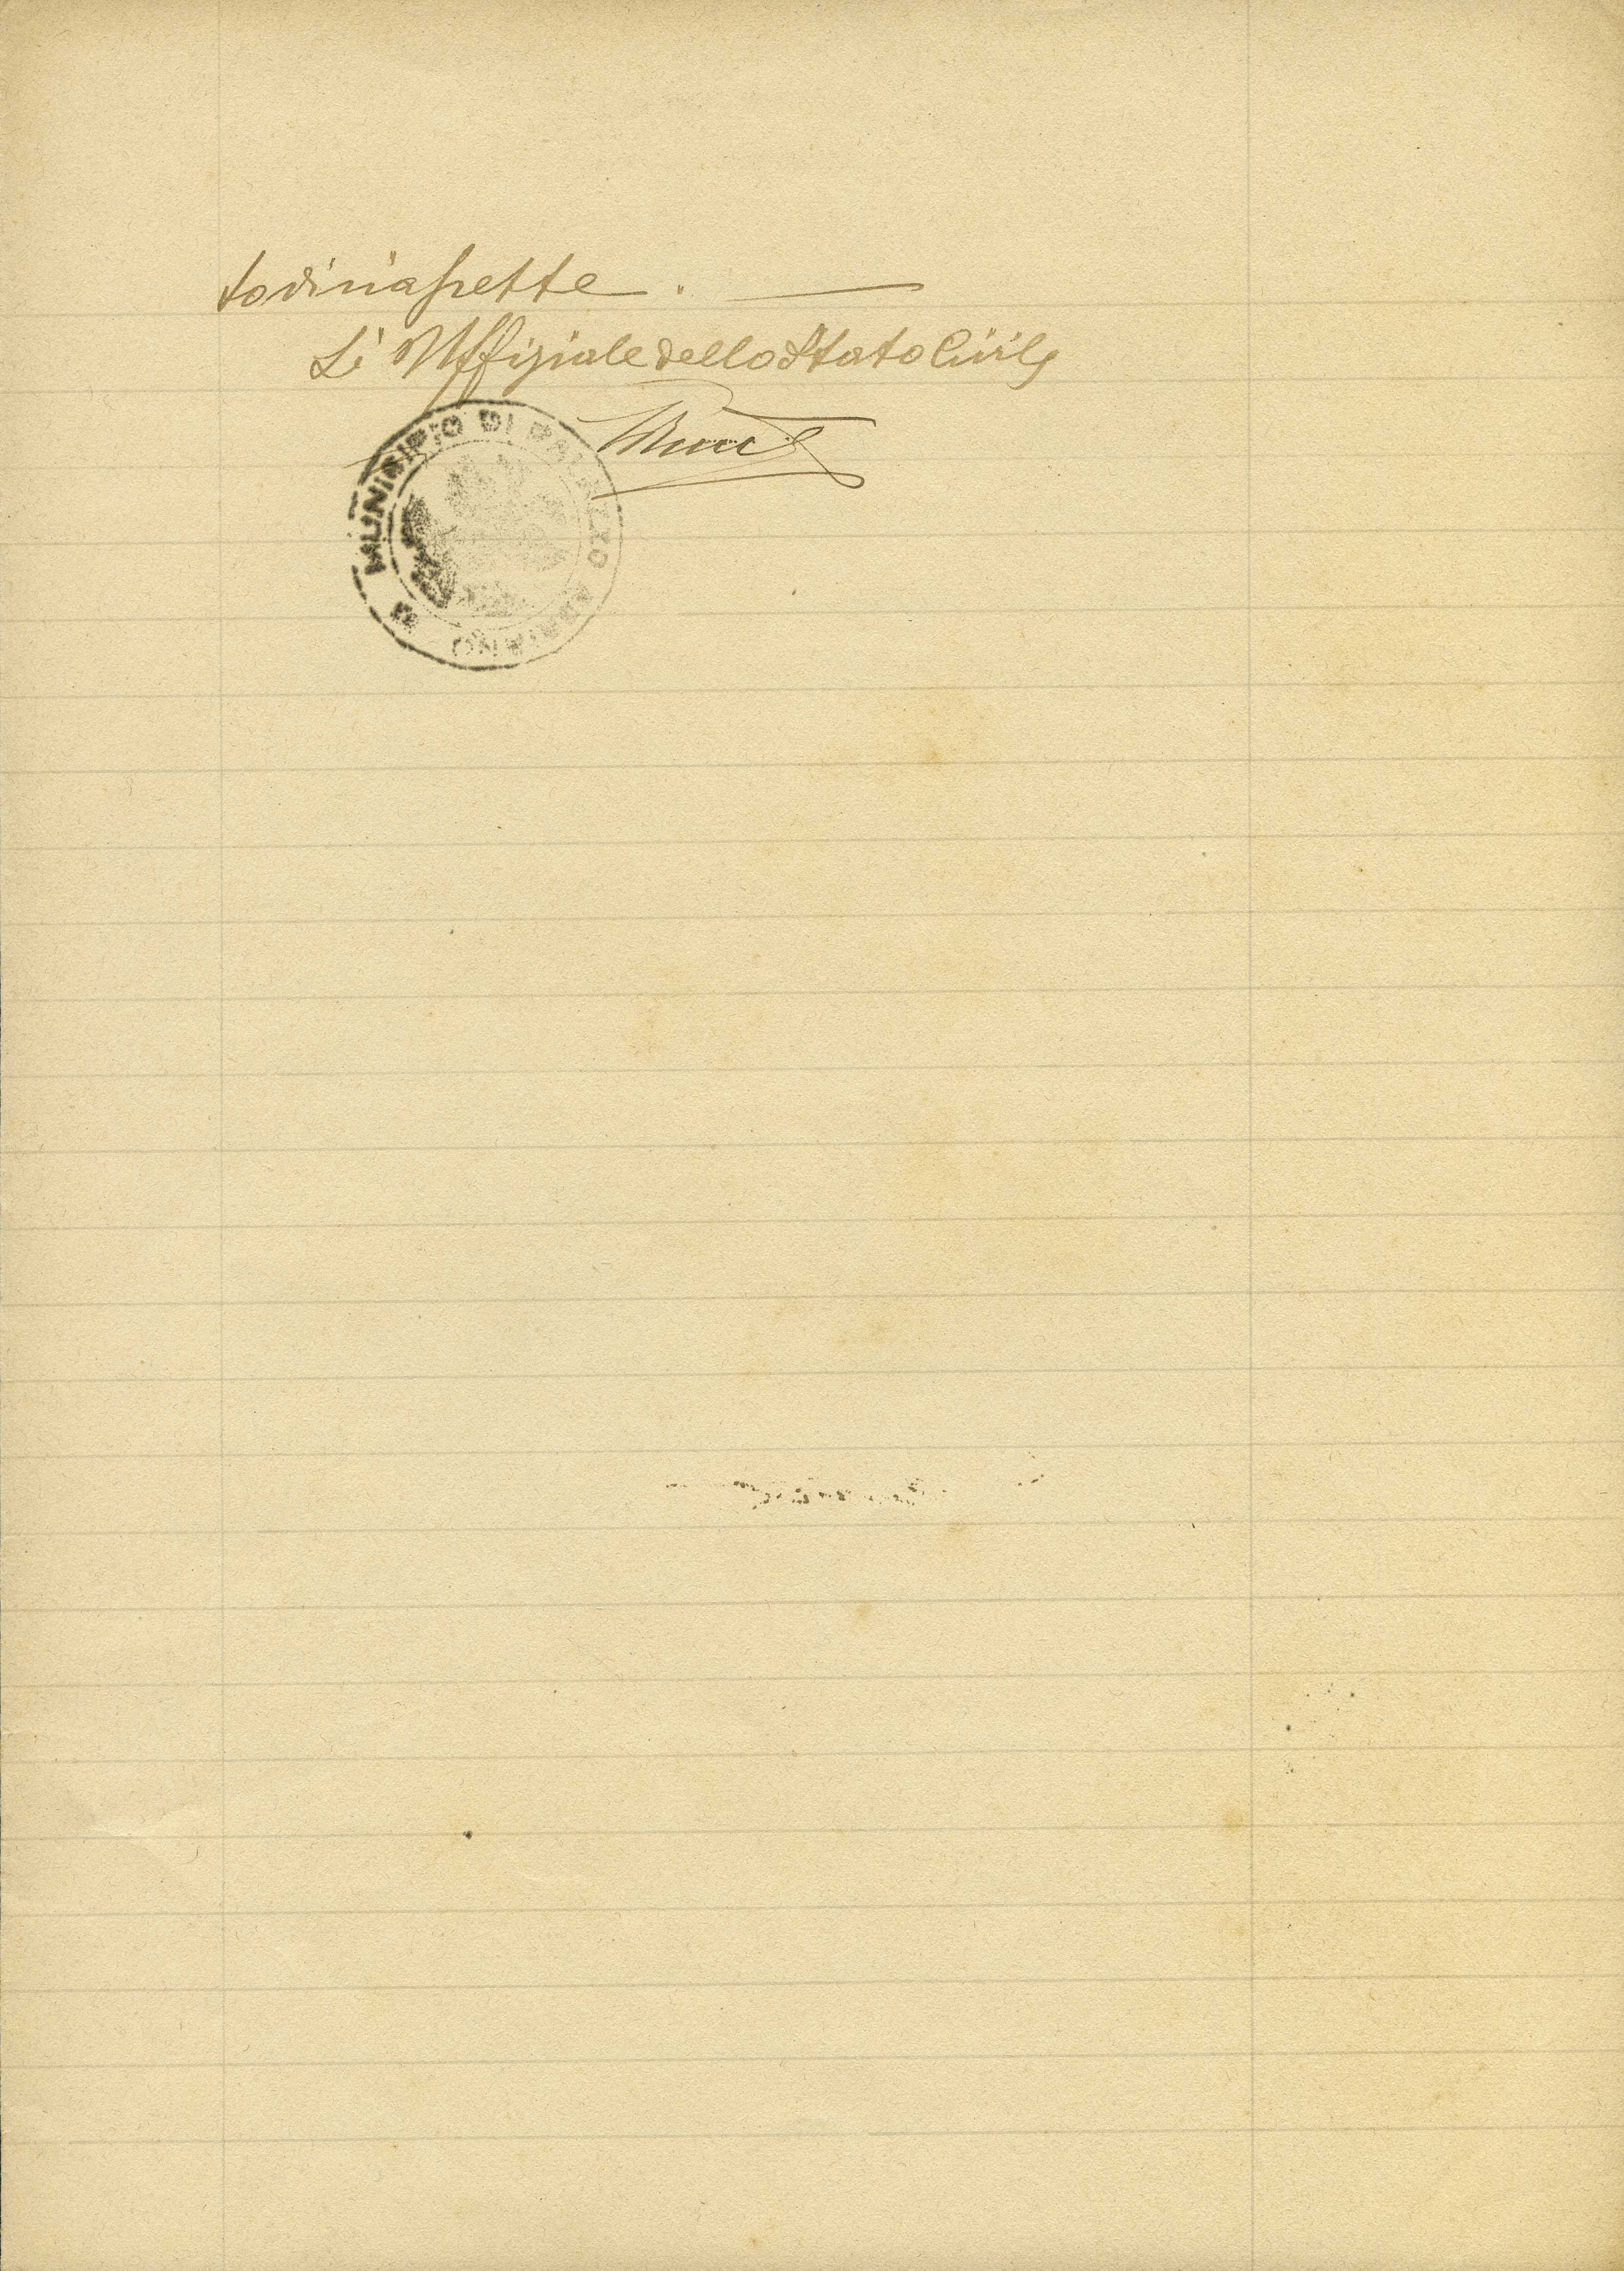 todiciassette.
L'Uffiziale dello Stato Civile
MUNICIPIO DI PALAZZO ADRIANO